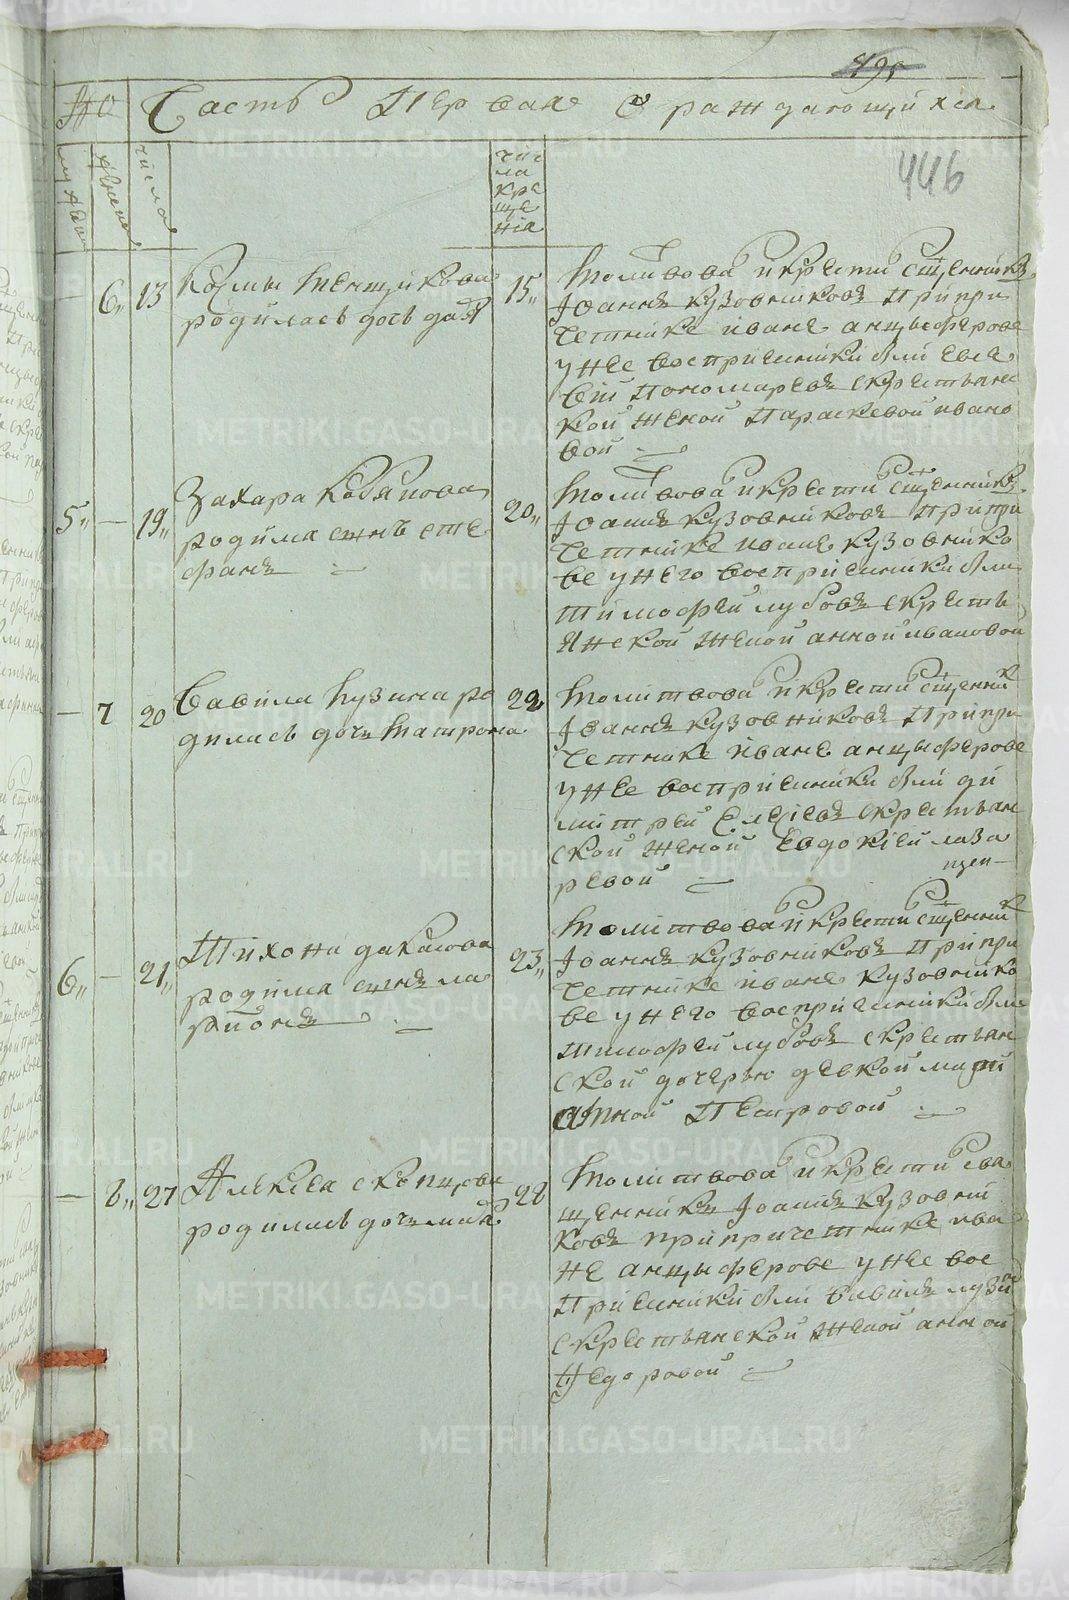 495
№
Часть Первая О раждающихся
446
мужеи
женеи
числа
чис
ла
кре
ще
нія
6,, 13
Козмы
родилась дочь
15,,
Молитвова и крести Сщенникъ
Іоаннъ кузовниковъ При при
четнике иване анцыферове
у нее восприемники были
Пономаревъ скрестьянс
кой женой Параскевой ивано
вой
5,, — 19,,
Захара
родился сынъ сте
фанъ
20,,
Молитвова и крести Сщенникъ
Іоаннъ кузовниковъ При при
четнике иване кузовнико
ве у него восприемники были
тимофей лубовъ скресть
янской женой анной ивановой
— 7 20
Савила кузина ро
дилась дочь матрона
22
Молитвова и крести Сщенник
Іоаннъ кузовниковъ При при
четнике иване анцыферове
у нее восприемники были ди
митрей Елисіевъ скрестьян
ской женой Евдокіей лаза
ревой
6,, — 21,,
Тихона
родился сынъ ла
ріонъ
23,,
Молитвова и крести Сщенник
Іоаннъ кузовниковъ При при
четнике иване кузовнико
ве у него восприемники были
тимофей лубовъ скрестьян
ской дочерью девкой
Петровой
— 8,, 27
Алексея
родилась дочь
28
Молитвова и крести свя
щенникъ Іоаннъ кузовни
ковъ при причетнике ива
не анцыферове у нее вос
Приемники были
скрестьянской женой анной
Федоровой
METRIKI.GASO-URAL.RU